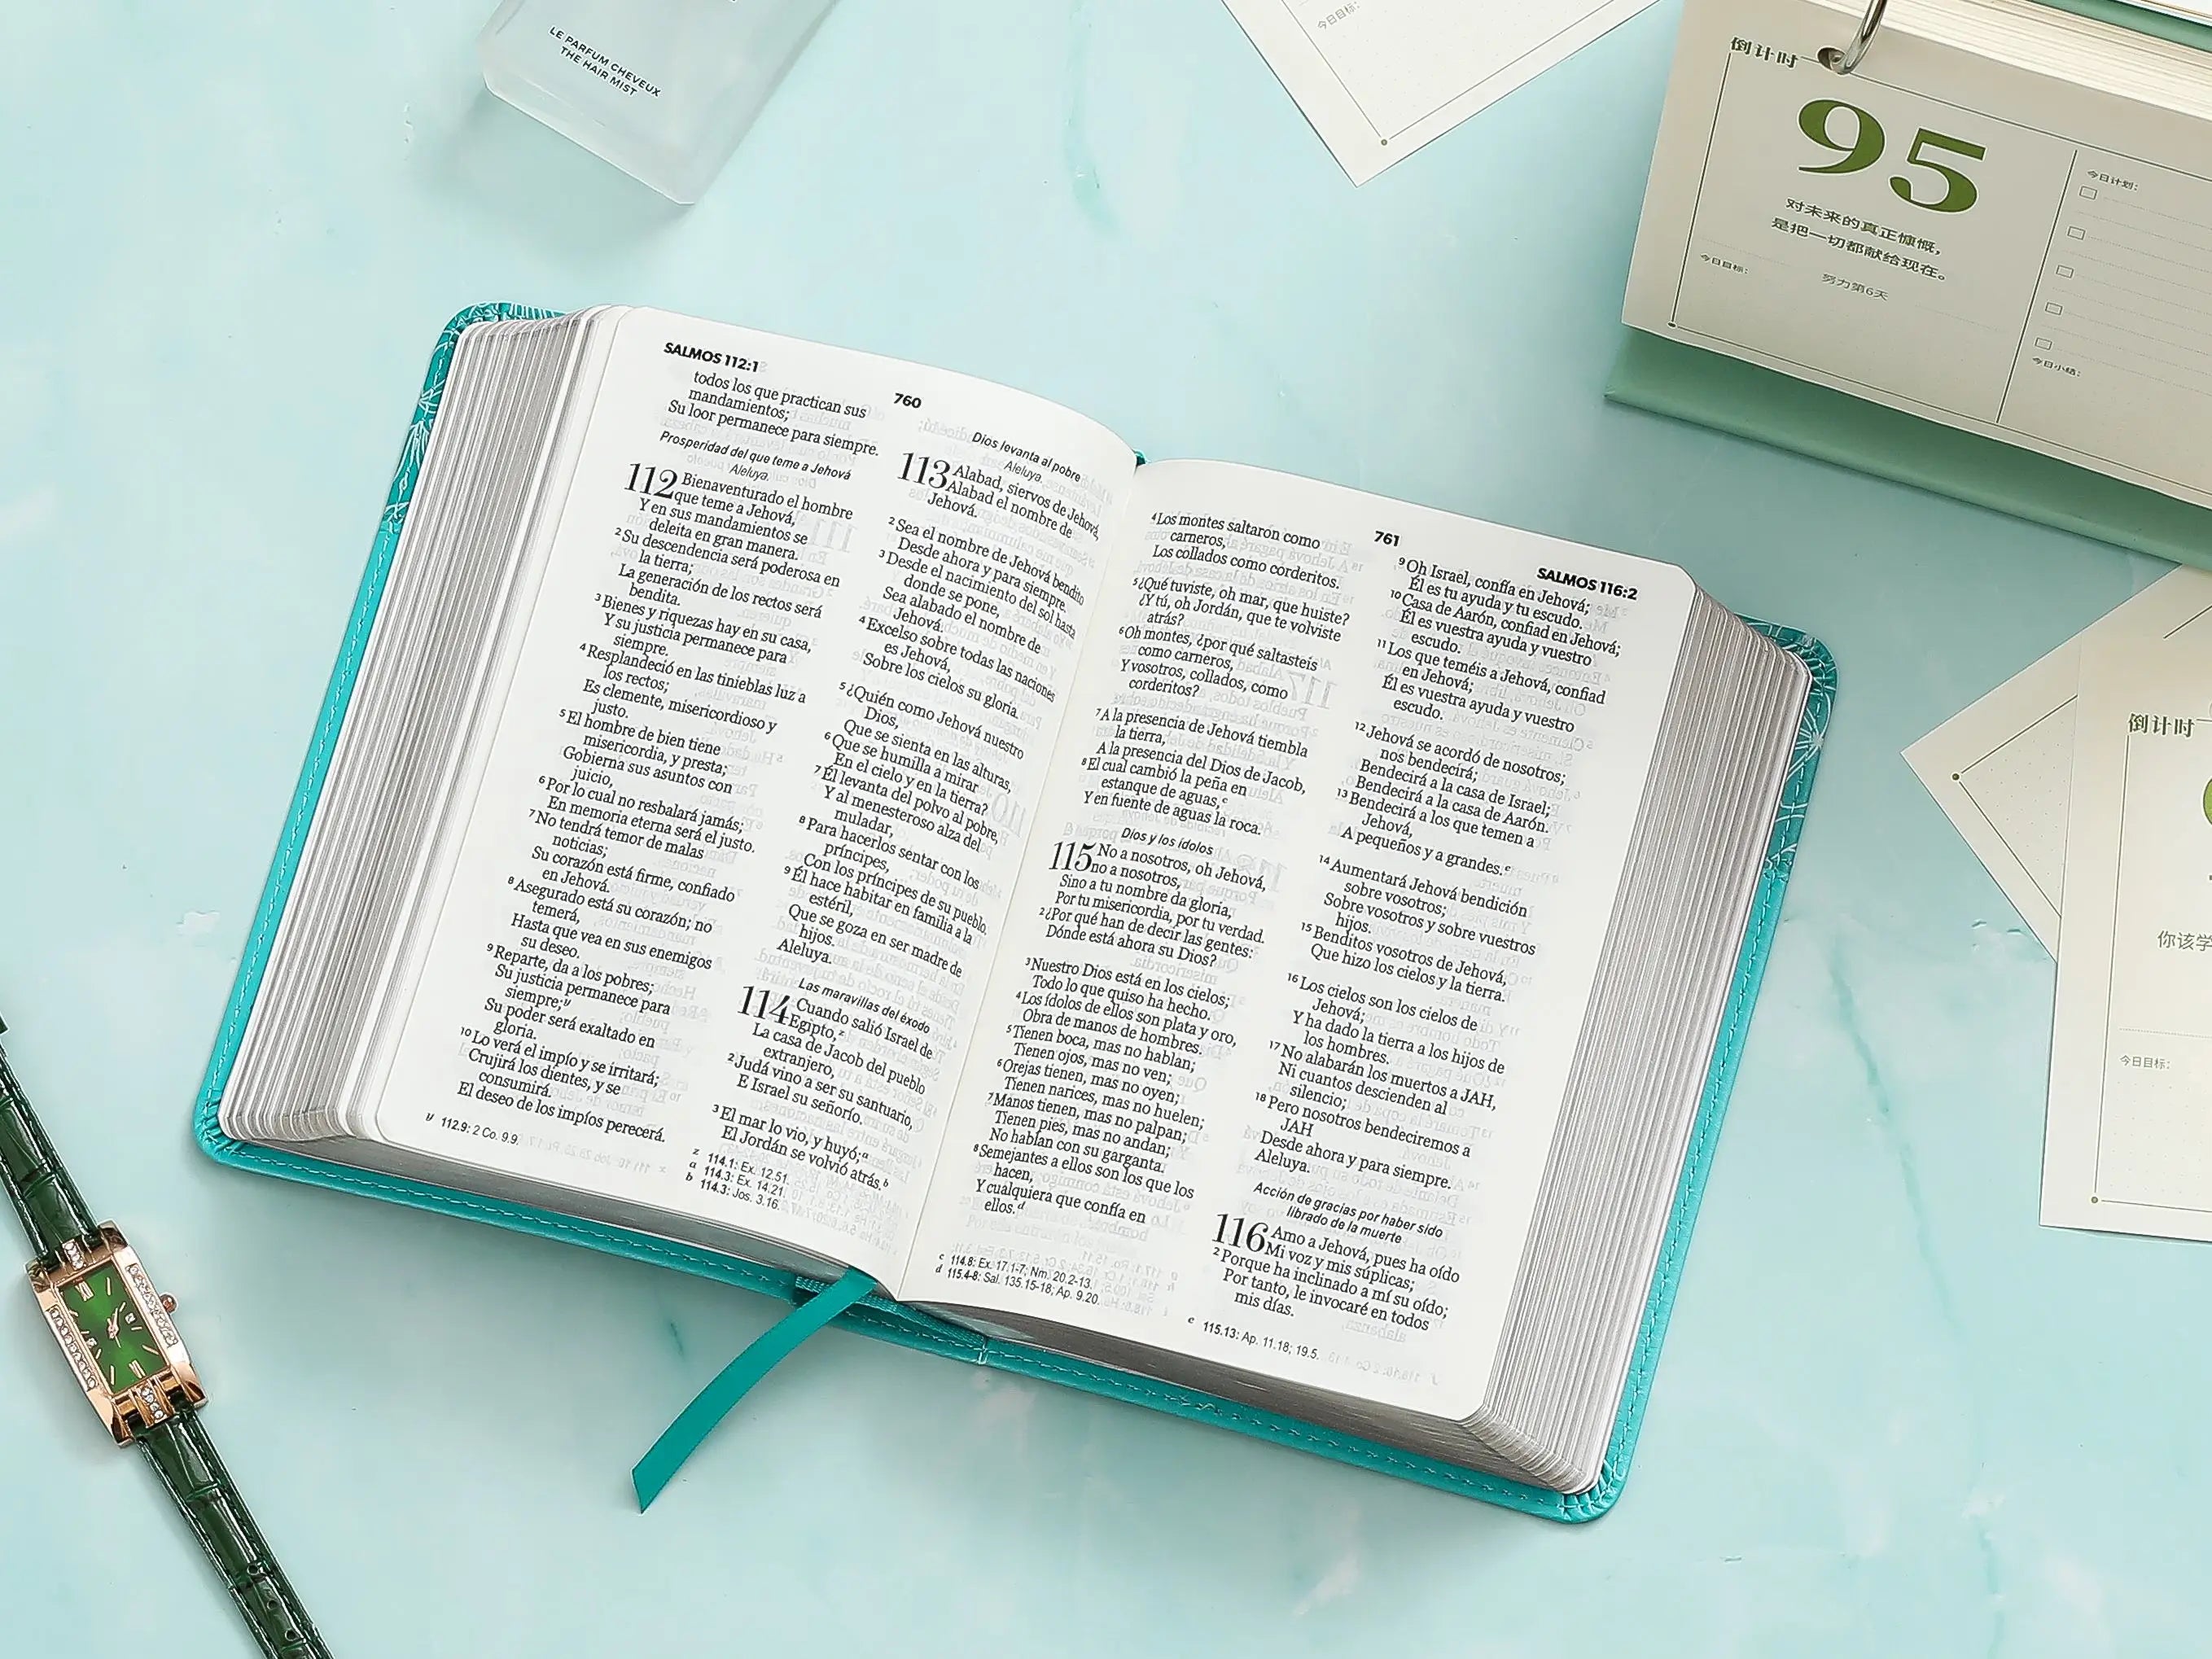 LE PARFUM CHEVEUX
THE HAIR MIST
今日目标:
倒计时
95
对未来的真正慷慨,
是把一切都献给现在。
今日目标:
努力第6天
今日计划:
今日小结:
倒计时
你该学
今日目标:
SALMOS 112:1
760
todos los que practican sus
mandamientos;
Su loor permanece para siempre.
Prosperidad del que teme a Jehová
Aleluya.
112 Bienaventurado el hombre
que teme a Jehová,
Y en sus mandamientos se
deleita en gran manera.
2 Su descendencia será poderosa en
la tierra;
La generación de los rectos será
bendita.
3 Bienes y riquezas hay en su casa,
Y su justicia permanece para
siempre.
4 Resplandeció en las tinieblas luz a
los rectos;
Es clemente, misericordioso y
justo.
5 El hombre de bien tiene
misericordia, y presta;
Gobierna sus asuntos con
juicio,
6 Por lo cual no resbalará jamás;
En memoria eterna será el justo.
7 No tendrá temor de malas
noticias;
Su corazón está firme, confiado
en Jehová.
8 Asegurado está su corazón; no
temerá,
Hasta que vea en sus enemigos
su deseo.
9 Reparte, da a los pobres;
Su justicia permanece para
siempre;y
Su poder será exaltado en
gloria.
10 Lo verá el impío y se irritará;
Crujirá los dientes, y se
consumirá.
El deseo de los impíos perecerá.
y 112.9: 2 Co. 9.9.
Dios levanta al pobre
Aleluya.
113 Alabad, siervos de Jehová,
Alabad el nombre de
Jehová.
2 Sea el nombre de Jehová bendito
Desde ahora y para siempre.
3 Desde el nacimiento del sol hasta
donde se pone,
Sea alabado el nombre de
Jehová.
4 Excelso sobre todas las naciones
es Jehová,
Sobre los cielos su gloria.
5 ¿Quién como Jehová nuestro
Dios,
Que se sienta en las alturas,
6 Que se humilla a mirar
En el cielo y en la tierra?
7 Él levanta del polvo al pobre,
Y al menesteroso alza del
muladar,
8 Para hacerlos sentar con los
príncipes,
Con los príncipes de su pueblo.
9 Él hace habitar en familia a la
estéril,
Que se goza en ser madre de
hijos.
Aleluya.
Las maravillas del éxodo
114 Cuando salió Israel de
Egipto,z
La casa de Jacob del pueblo
extranjero,
2 Judá vino a ser su santuario,
E Israel su señorío.
3 El mar lo vio, y huyó;a
El Jordán se volvió atrás.b
z 114.1: Ex. 12.51.
a 114.3: Ex. 14.21.
b 114.3: Jos. 3.16.
761
SALMOS 116:2
4 Los montes saltaron como
carneros,
Los collados como corderitos.
5 ¿Qué tuviste, oh mar, que huiste?
¿Y tú, oh Jordán, que te volviste
atrás?
6 Oh montes, ¿por qué saltasteis
como carneros,
Y vosotros, collados, como
corderitos?
7 A la presencia de Jehová tiembla
la tierra,
A la presencia del Dios de Jacob,
8 El cual cambió la peña en
estanque de aguas,c
Y en fuente de aguas la roca.
Dios y los ídolos
115 No a nosotros, oh Jehová,
no a nosotros,
Sino a tu nombre da gloria,
Por tu misericordia, por tu verdad.
2 ¿Por qué han de decir las gentes:
Dónde está ahora su Dios?
3 Nuestro Dios está en los cielos;
Todo lo que quiso ha hecho.
4 Los ídolos de ellos son plata y oro,
Obra de manos de hombres.
5 Tienen boca, mas no hablan;
Tienen ojos, mas no ven;
6 Orejas tienen, mas no oyen;
Tienen narices, mas no huelen;
7 Manos tienen, mas no palpan;
Tienen pies, mas no andan;
No hablan con su garganta.
8 Semejantes a ellos son los que los
hacen,
Y cualquiera que confía en
ellos.d
c 114.8: Ex. 17.1-7; Nm. 20.2-13.
d 115.4-8: Sal. 135.15-18; Ap. 9.20.
9 Oh Israel, confía en Jehová;
Él es tu ayuda y tu escudo.
10 Casa de Aarón, confiad en Jehová;
Él es vuestra ayuda y vuestro
escudo.
11 Los que teméis a Jehová, confiad
en Jehová;
Él es vuestra ayuda y vuestro
escudo.
12 Jehová se acordó de nosotros;
nos bendecirá;
Bendecirá a la casa de Israel;
Bendecirá a la casa de Aarón.
13 Bendecirá a los que temen a
Jehová,
A pequeños y a grandes.e
14 Aumentará Jehová bendición
sobre vosotros;
Sobre vosotros y sobre vuestros
hijos.
15 Benditos vosotros de Jehová,
Que hizo los cielos y la tierra.
16 Los cielos son los cielos de
Jehová;
Y ha dado la tierra a los hijos de
los hombres.
17 No alabarán los muertos a JAH,
Ni cuantos descienden al
silencio;
18 Pero nosotros bendeciremos a
JAH
Desde ahora y para siempre.
Aleluya.
Acción de gracias por haber sido
librado de la muerte
116 Amo a Jehová, pues ha oído
Mi voz y mis súplicas;
2 Porque ha inclinado a mí su oído;
Por tanto, le invocaré en todos
mis días.
e 115.13: Ap. 11.18; 19.5.